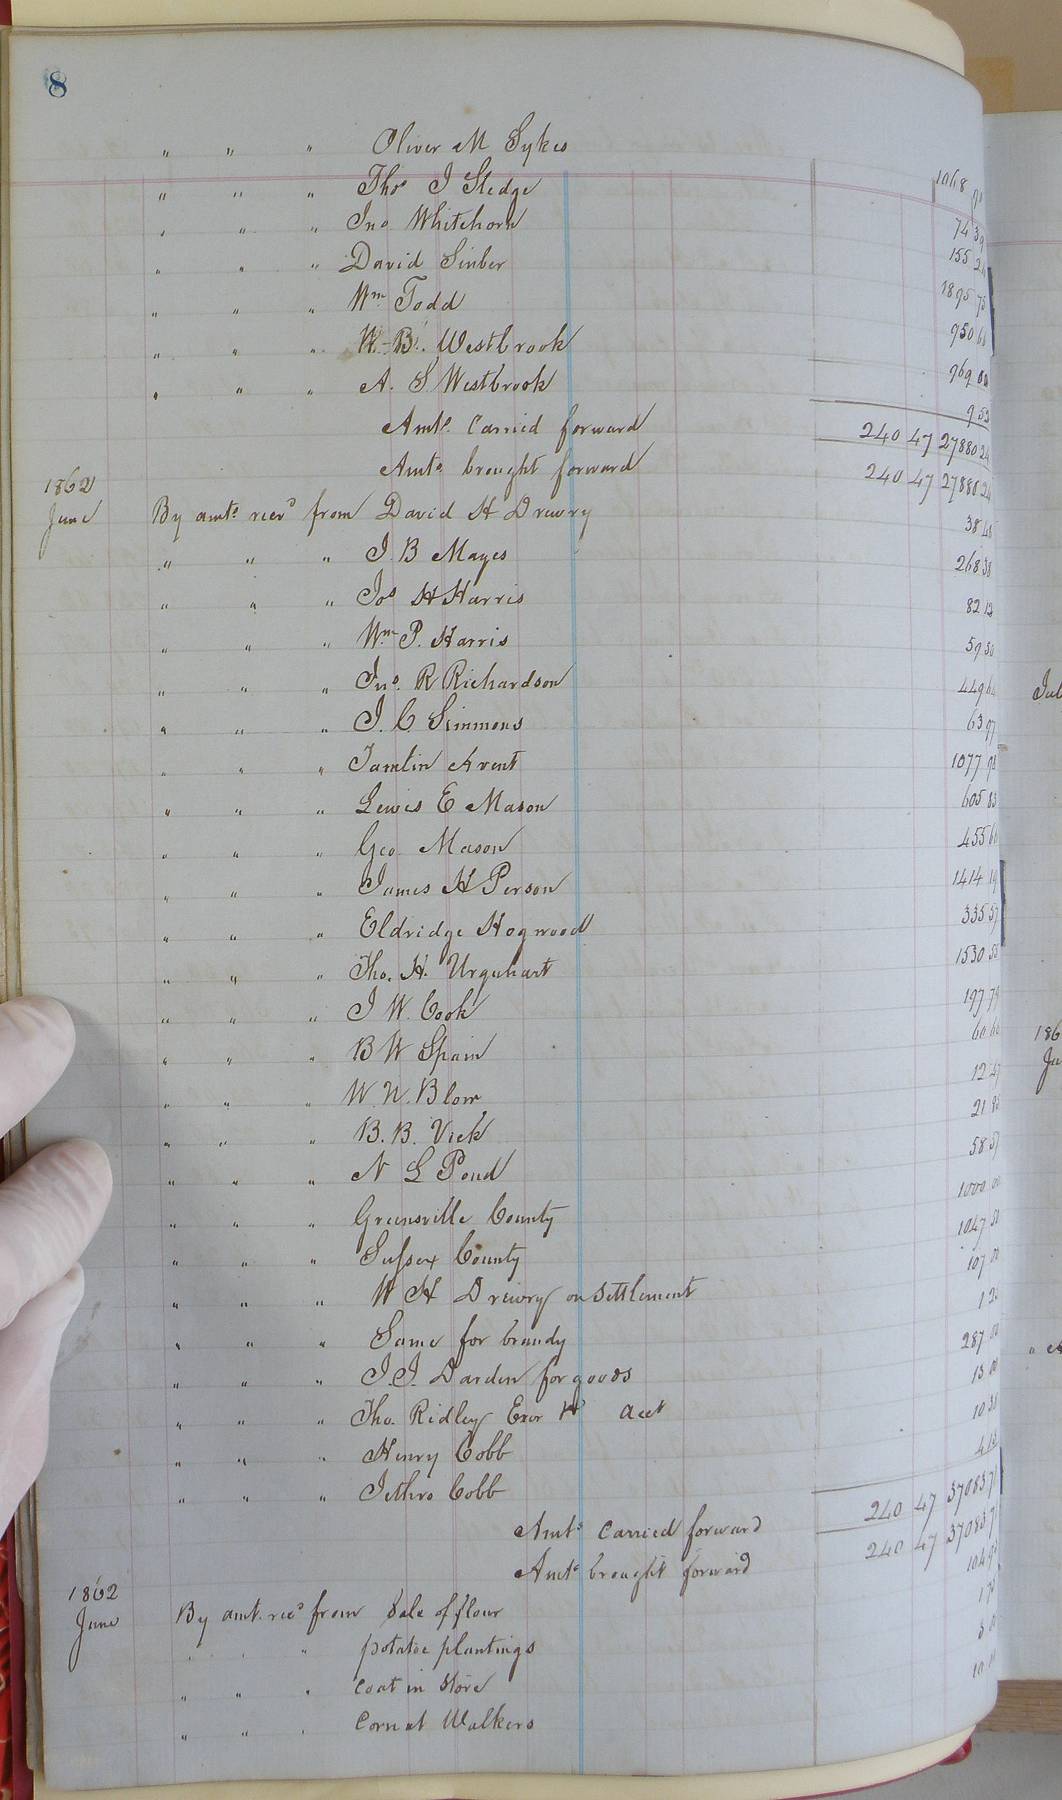 8
" " " Oliver M Sykes 1068
" " " Thos I Sledge 74 39
" " " Jno. Whitehorn 155 24
" " " David Sinber 1895 75
" " " Wm Todd 950 60
" " " W. B. Westbrook 969 00
" " " A. S Westbrook 9 53
Amts. Carried forward 240 47 27880 24
Amts brought forward 240 47 27880 24
1862
June By amts recvd from David H Drewry 38 48
" " " J. B Mayes 268 38
" " " Jos H Harris 82 12
" " " Wm P. Harris 59 50
" " " Jno. R Richardson 449 64
" " " J. C Simmons 63 97
" " " Tamlin Avent 1077 98
" " " Lewis E Mason 605 83
" " " Geo Mason 455 60
" " " James H Person 1414 19
" " " Eldridge Hogwood 335 57
" " " Tho. H. Urquhart 1530 55
" " " J W. Cook 197 79
" " " B W Spain 60 60
" " " W. N. Blow 12 47
" " " B. B. Vick 21 85
" " " N L Pond 58 57
" " " Greensville County 1000 00
" " " Sussex County 1047 50
" " " W H Drewry on settlement 107 00
" " " Same for brandy 1 25
" " " J. J. Darden for goods 287 00
" " " Tho. Ridley Exor acct 13 00
" " " Henry Cobb 10 35
" " " Jethro Cobb 4 12
Amts carried forward 240 47 37083 71
Amts brought forward 240 47 37083 71
1862
June By amt. recd from Sale of flour 104 93
" " " potatoe plantings 1 75
" " " Coat in Store 5 00
" " " Corn at Walkers 10 00
Jul
186
Ju